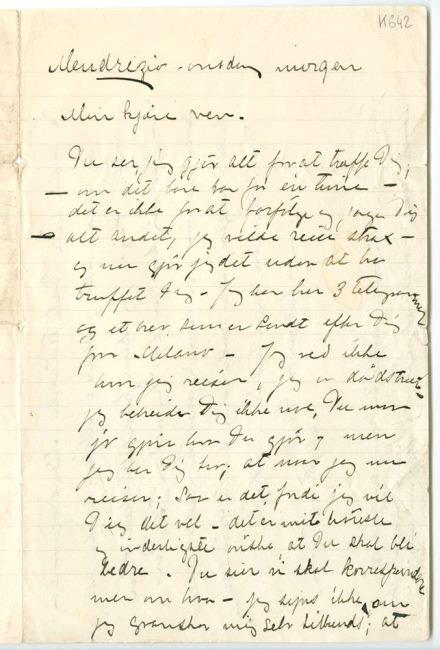 K642
Mendrizio - onsdag morgen
Min kjære ven.
Du ser, jeg gjør alt for at træffe Dig,
– om det bare var for én time –
det er ikke for at forfølge og Dig
alt andet, jeg vilde reise strax –
og nu gjør jeg det uden at ha
truffet Dig – Jeg har her 3 telegrammer
og et brev som er sendt efter Dig
fra Milano – Jeg ved ikke
hvor jeg reiser, jeg er dødstræt –
jeg bebreider Dig ikke noe, Du maa
jo gjøre hva Du gjør, men
jeg ber Dig tro; at naar jeg nu
reiser; saa er det fordi jeg vil
Dig det vel – det er mit høieste
og inderligste ønske at Du skal bli
bedre. Du sier vi skal korrespondere
men om hva – jeg synes ikke, om
jeg gransker mig selv tilbunds; at